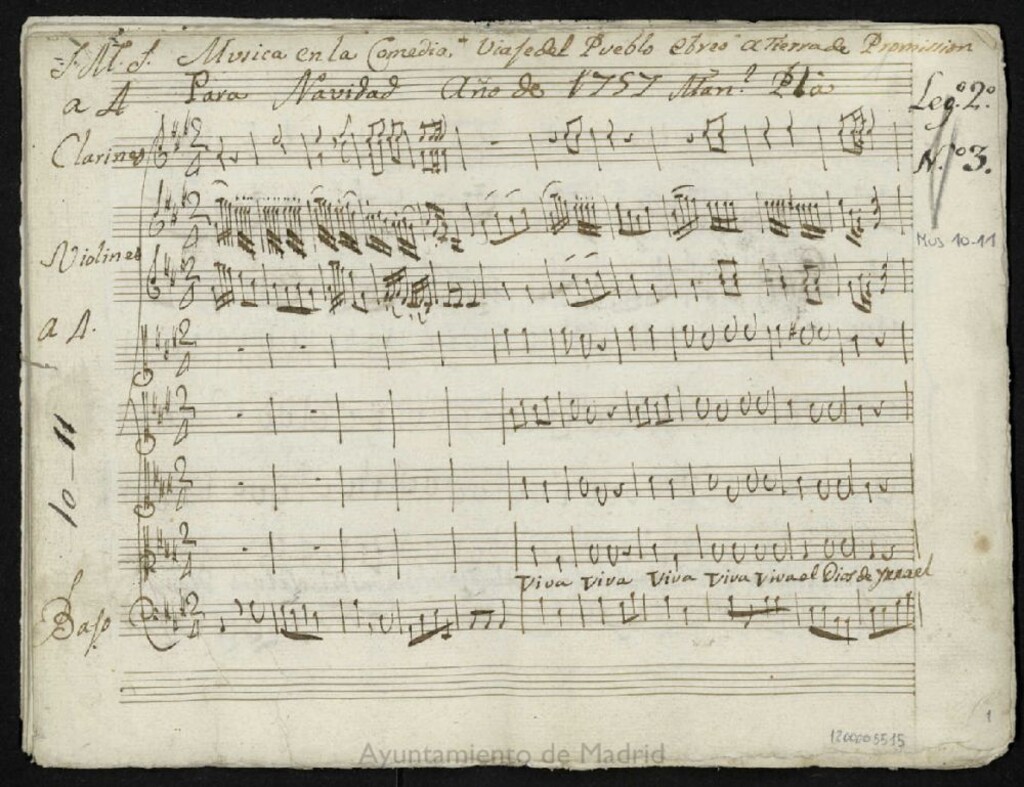 J. M. J. Musica en la Comedia, Viaje del Pueblo ebreo a tierra de Promission
a 4 Para Navidad Año de 1757 Man.l Pla
Leg.o 2.o
N.o 3.
Clarines
Mus 10-11
Violines
a 4.
10-11
Viva Viva Viva Viva Viva el Dios de Ysrael
Bajo
1
1200005515
Ayuntamiento de Madrid